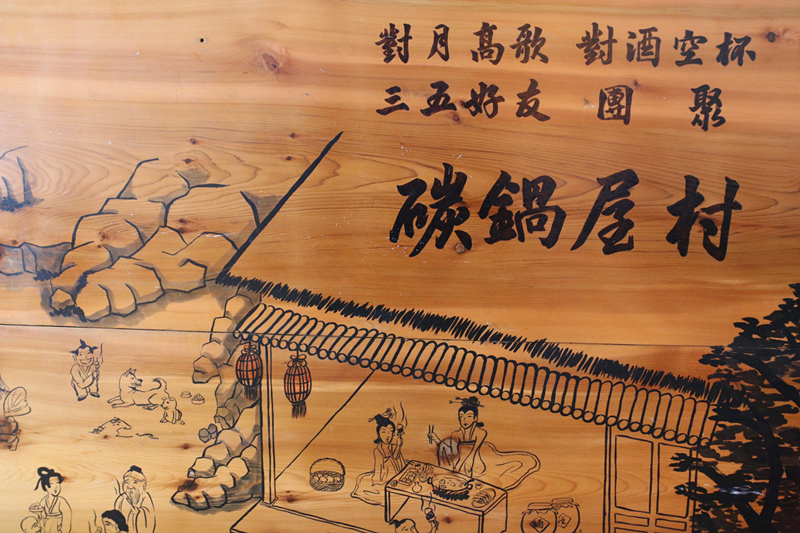 對月高歌 對酒空杯
三五好友 團聚
碳鍋屋村
酒